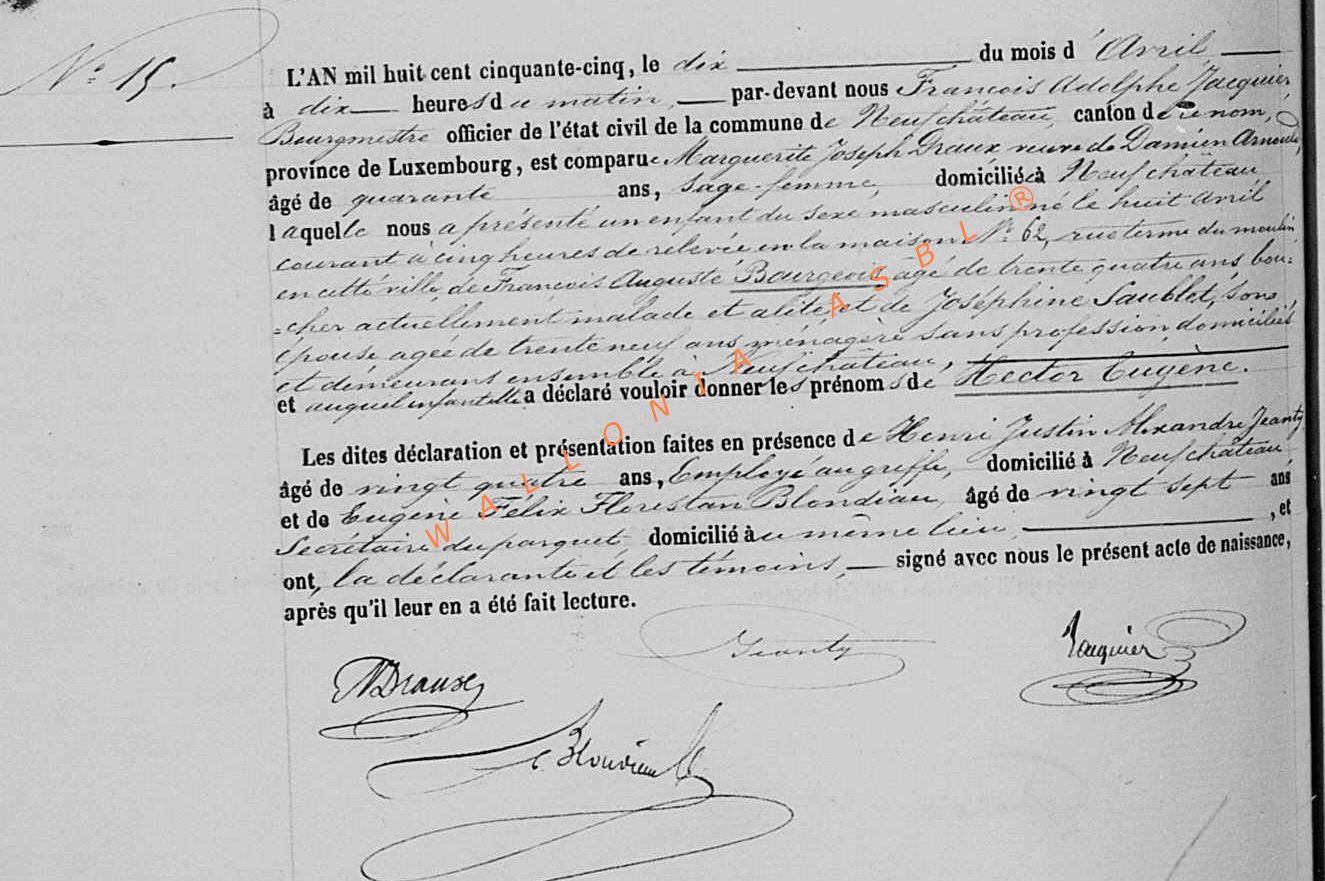 N° 15.
L'AN mil huit cent cinquante-cinq, le dix du mois d'Avril
à dix heures du matin, par-devant nous François Adolphe Jacquier,
Bourgmestre officier de l'état civil de la commune de Neufchâteau, canton de ce nom,
province de Luxembourg, est comparue Marguerite Joseph Draux veuve de Damien Arnould,
âgé de quarante ans, sage-femme, domiciliée à Neufchâteau
laquelle nous a présenté un enfant du sexe masculin né le huit avril
courant à cinq heures de relevée en la maison N° 62, rue terme du moulin
en cette ville, de François Auguste Bourgeois, âgé de trente quatre ans, bou=
=cher actuellement malade et alité et de Joséphine Saublet, son
épouse agée de trente neuf ans ménagère sans profession, domiciliés
et demeurans ensemble à Neufchâteau,
et auquel enfant elle a déclaré vouloir donner les prénoms de Hector Eugène.
Les dites déclaration et présentation faites en présence de Henri Justin Alexandre Jeanty,
âgé de vingt quatre ans, Employé au greffe, domicilié à Neufchâteau
et de Eugène Félix Florestan Blondiau, âgé de vingt sept ans
Secrétaire du parquet domicilié au même lieu, , et
ont, la déclarante et les témoins signé avec nous le présent acte de naissance,
après qu'il leur en a été fait lecture.
Jeanty
Jacquier
Blondiau
WALLONIA ASBL ®